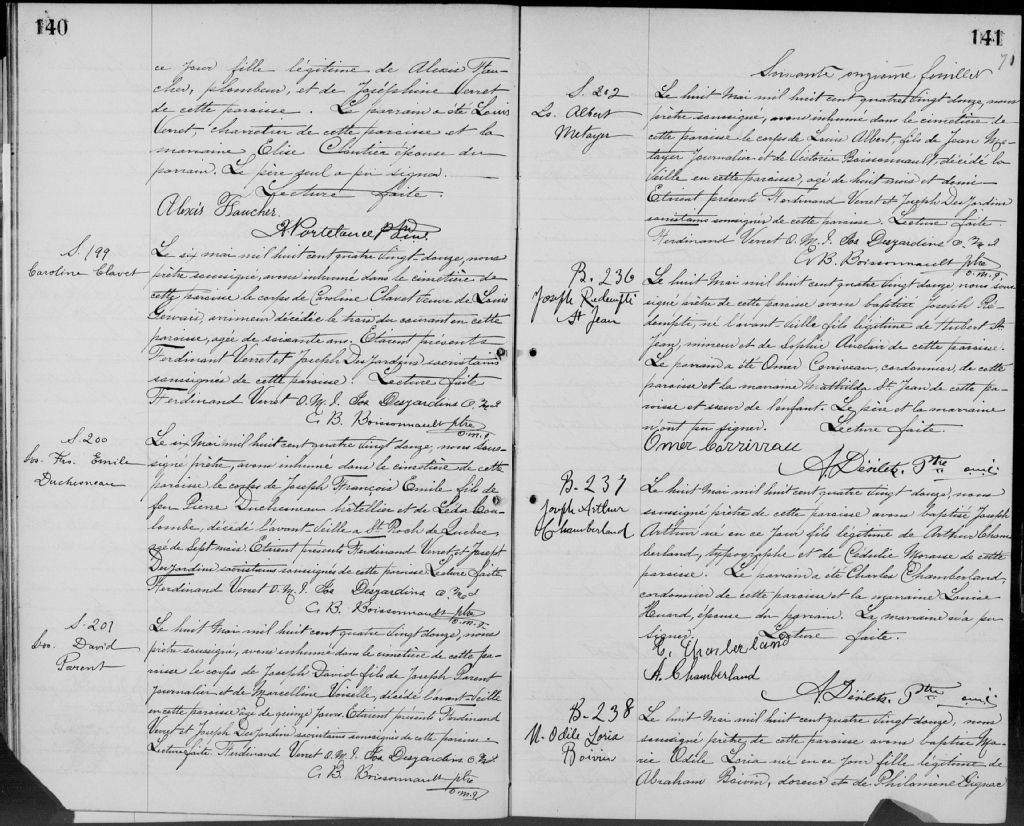 140
ce jour fille légitime de Alexis Fau-
cher, plombeur, et de Joséphine Verret
de cette paroisse. Le parrain a été Louis
Verret charretier de cette paroisse et la
marraine Elise Cloutier épouse du
parrain. Le père seul a pu signer.
Lecture faite
Alexis Faucher.
S. 199
Caroline Clavet
Le six mai mil huit cent quatre vingt douze, nous
prêtre soussigné, avons inhumé dans le cimetière de
cette paroisse le corps de Caroline Clavet veuve de Louis
Gervais, décédée le trois du courant en cette
paroisse, agée de soixante ans. Etaient présents
Ferdinand Verret et Joseph DesJardins sacristains
soussignés de cette paroisse. Lecture faite
Ferdinand Verret O.M.I. Jos Desjardins
G. B. Boissonnault ptre
o.m.i
S. 200
Jos. Frs. Emile
Duchesneau
Le six Mai mil huit cent quatre vingt douze, nous sous-
signé prêtre, avons inhumé dans le cimetière de cette
paroisse, le corps de Joseph François Emile fils de
feu Pierre Duchesneau hôtellier et de Léda Cou-
lombe, décédé l'avant-veille a St Roch de Quebec
agé de Sept mois. Etaient présents Ferdinand Verret et Joseph
DesJardins sacristains soussignés de cette paroisse Lecture faite
Ferdinand Verret O.M.I. Jos Desjardins
G. B. Boissonnault ptre
o.m.i
S. 201
Jos. David
Parent
Le huit Mai mil huit cent quatre vingt douze, nous
prêtre soussigné, avons inhumé dans le cimetière de cette pa-
roisse le corps de Joseph David fils de Joseph Parent
Journalier et de Marcelline Voiselle, décédé l'avant-veille
en cette paroisse agé de quinze jours. Etaient présents Ferdinand
Verret et Joseph DesJardins sacristains soussignés de cette paroisse
Lecture faite. Ferdinand Verret O.M.I. Jos Desjardins
G. B. Boissonnault ptre
o.m.i
141
71
Soixante onzième feuillet
S. 202
Ls. Albert
Metayer
Le huit Mai mil huit cent quatre vingt douze, nous
prêtre soussigné, avons inhumé dans le cimetière de
cette paroisse le corps de Louis Albert, fils de Jean Me-
tayer Journalier et de Victoria Boissonnault, décédé la
veille en cette paroisse, agé de huit mois et demi
Etaient présents Ferdinand Verret et Joseph DesJardins
sacristains soussignés de cette paroisse. Lecture faite
Ferdinand Verret O.M.I. Jos Desjardins
G. B. Boissonnault ptre
o.m.i
B. 236
Joseph Redempti
St Jean
Le huit Mai mil huit cent quatre vingt douze, nous sous-
signé prêtre de cette paroisse avons baptisé Joseph Ré-
dempte, né l'avant-veille fils légitime de Hubert St.
Jean, mineur et de Sophie Auclair de cette paroisse.
Le parrain a été Omer Coriveau, cordonnier, de cette
paroisse et la maraine Mathilda St. Jean de cette pa-
roisse et soeur de l'enfant. Le père et la marraine
n'ont pu signer. Lecture faite.
Omer Corrivau
B. 237
Joseph Arthur
Chamberland
Le huit Mai mil huit cent quatre vingt douze, nous
soussigné prêtre de cette paroisse avons baptisé Joseph
Arthur né en ce jour fils légitime de Arthur Cham
berland, typographe et de Cédulie Morasse de cette
paroisse. Le parrain a été Charles Chamberland,
cordonnier de cette paroisse et la marraine Louise
Huard, épouse du parrain. La marraine n'a pu
signer. Lecture faite.
A. Chamberland
B. 238
M. Odile Loria
Boivin
Le huit Mai mil huit cent quatre vingt douze, nous
soussigné prêtre de cette paroisse avons baptisé Ma-
rie Odile Loria née en ce jour fille légitime de
Abraham Boivin, doreur et de Philomène Gignac